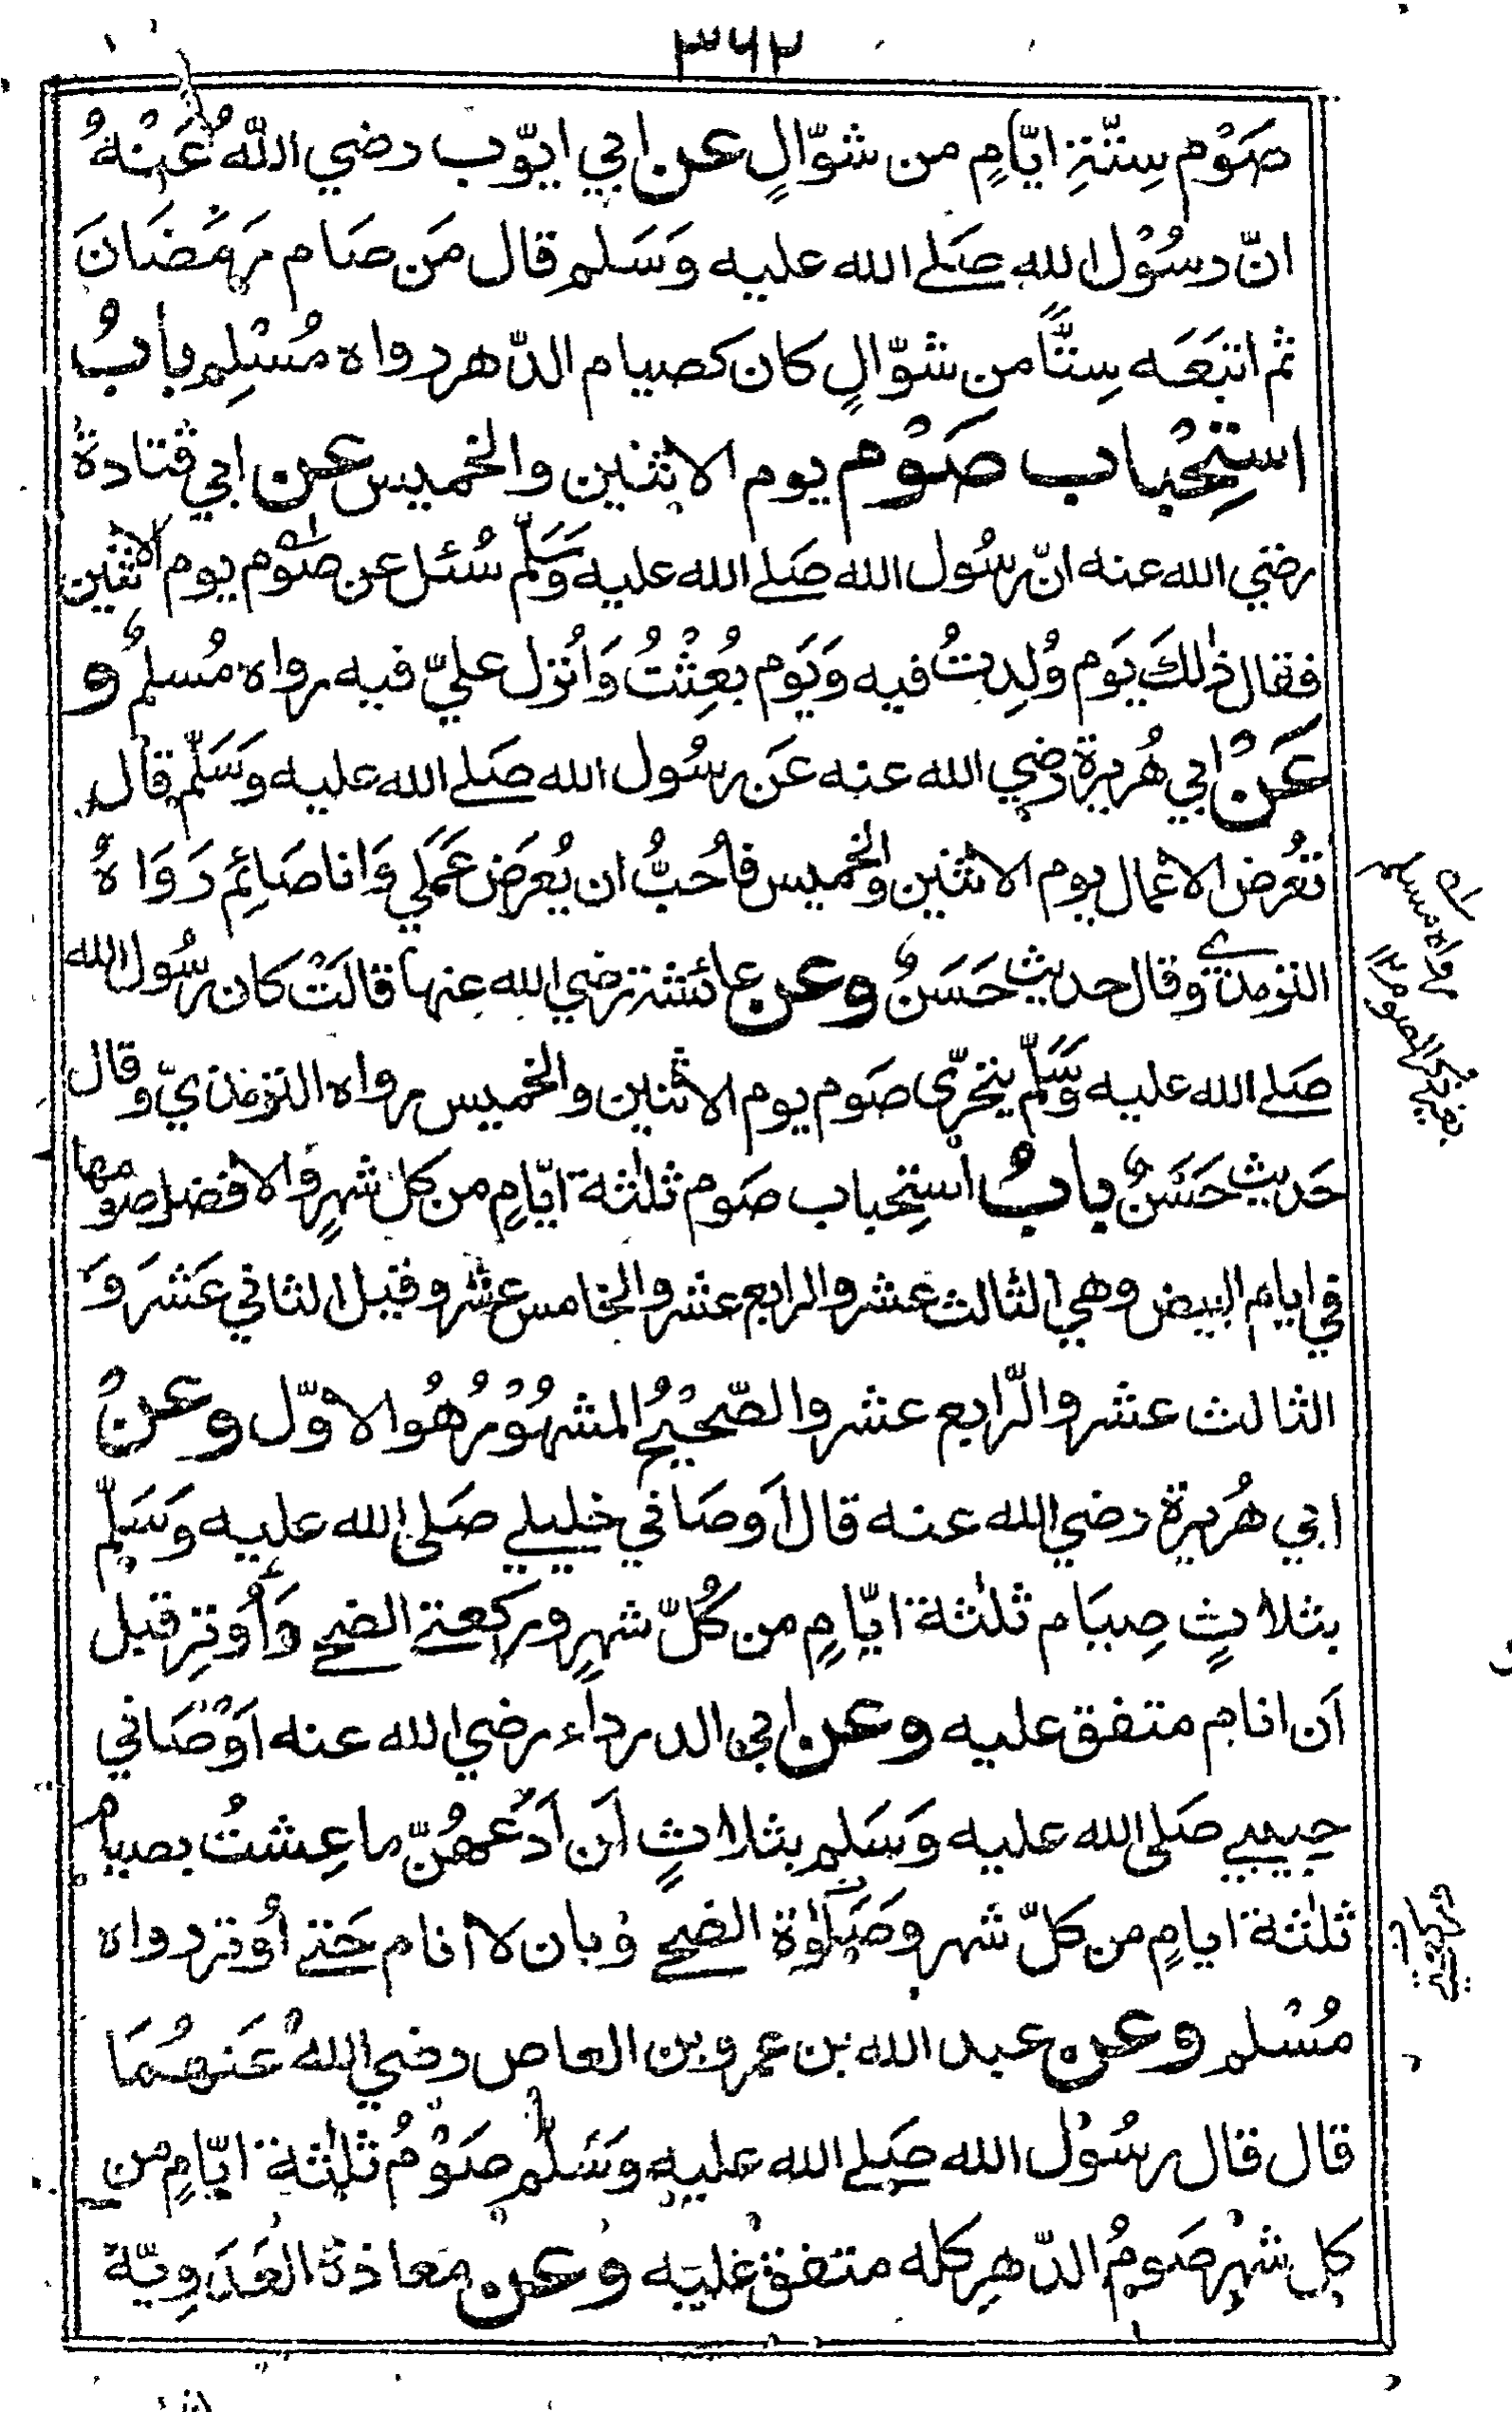 ٣٦٢
صَوْم سِتَّةِ ايَّامٍ من شوّالٍ عن ابي ايّوب رضي اللهُ عَنْهُ
انّ رسُوْل الله صَلے الله عليه وَسَلم قال مَن صَام رَمَضَانَ
ثم اتبَعَه سِتًّا من شوّالٍ كان كصيام الدّهر رواه مُسْلِم بابُ
استِحْباب صَوْم يوم الاثنين والخميس عن ابي قتادة
رضي الله عنه انّ رسُول الله صَلے الله عليه وَسَلّم سُئل عن صَوْم يوم الاثنين
فقال ذٰلكَ يَوم وُلِدتُ فيه وَيَوم بُعِثْتُ وَاُنزل عليّ فيه رواه مُسلمٌ و
عَنْ ابي هُريرة رضي الله عنه عَن رسُول الله صَلے الله عليه وَسَلّم قال
تُعْرَض الاعْمال يوم الاثنين والخميس فاُحبُّ ان يُعرَض عَمَلي وَانا صَائِم رَوَاهُ
الترمذے وقال حديث حَسَنٌ وعن عائشة رضي الله عنها قالَتْ كان رسُول الله
صَلے الله عليه وَسَلّم يتحرّى صَوم يوم الاثنين والخميس رواه الترمذيّ وقال
حَديث حَسَنٌ بابُ استِحْباب صَوم ثلٰثة ايّامٍ من كل شهرٍ والافضل صومها
في ايام البيض وهي الثالث عشر والرابع عشر والخامس عشر وقيل الثاني عَشَر وَ
الثالث عشر والرّابع عشر والصّحِيْحُ المشهُوْرُ هُو الاوّل وعنْ
ابي هُريرة رضي الله عنه قال اَوصَاني خليلے صَلى الله عليه وَسَلّم
بثلاثٍ صِيَام ثلٰثة ايّامٍ من كُلّ شهرٍ وركعتے الضحے وَاُوتِر قبل
اَن انام متفق عليه وعن ابي الدرداء رضي الله عنه اَوْصَاني
حبيبے صَلى الله عليه وَسَلم بثلاثٍ لَن اَدَعَهُنّ ما عِشتُ بصيام
ثلٰثة ايامٍ من كلّ شهر وصَلٰوة الضحے وبان لا انام حَتے اُوتر رواه
مُسْلم وعن عبد الله بن عمرو بن العاص رضي اللهُ عَنهُمَا
قال قال رسُوْل الله صَلے الله عليه وَسَلّم صَوْمُ ثلٰثة ايّامٍ من
كل شهْرٍ صَومُ الدّهرِ كله متفق عليه وعن مَعاذة العَدَوِيّة
رواه مسلم
بغير ذكر الصوم